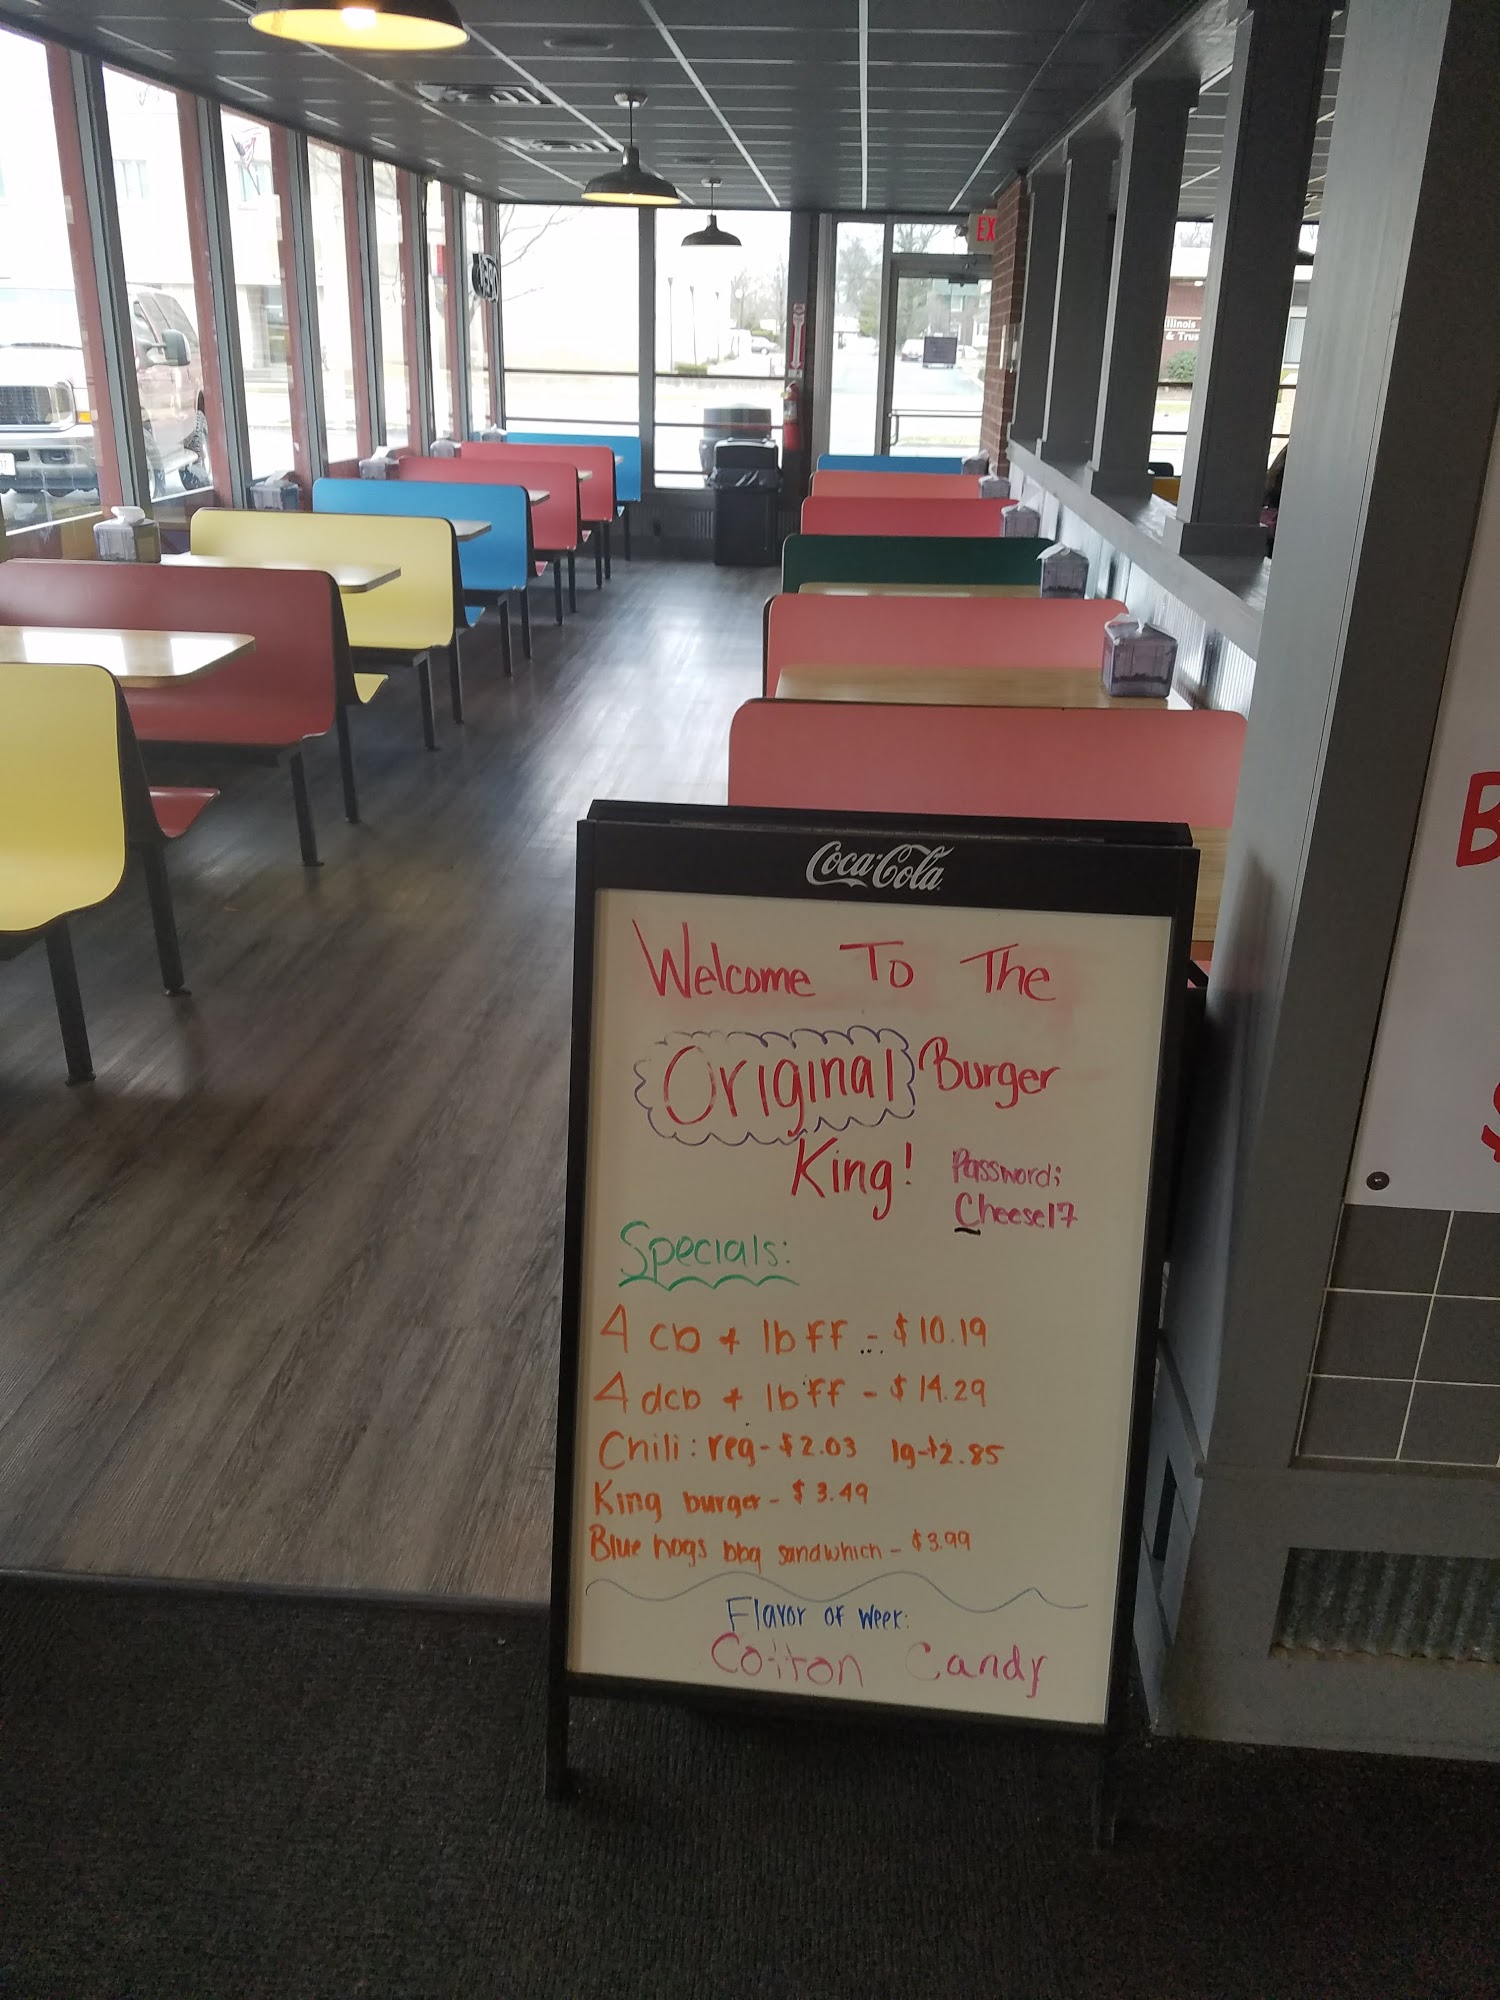 EX
Illinois
& Trus
Coca-Cola
Welcome To The
Original Burger
King!
Password;
Cheese17
Specials:
4 cb + 1b ff - $10.19
4 dcb + 1b ff - $14.29
Chili: reg- $2.03 lg-$2.85
King burger - $3.49
Blue hogs bbq sandwhich - $3.99
Flavor of week:
Cotton Candy
B
$